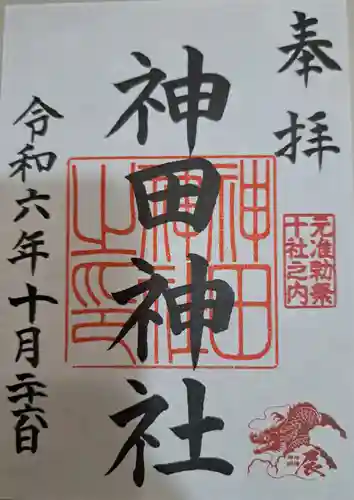 奉拝
元准勅祭
十社之内
神田神社
令和六年十月二十六日
辰